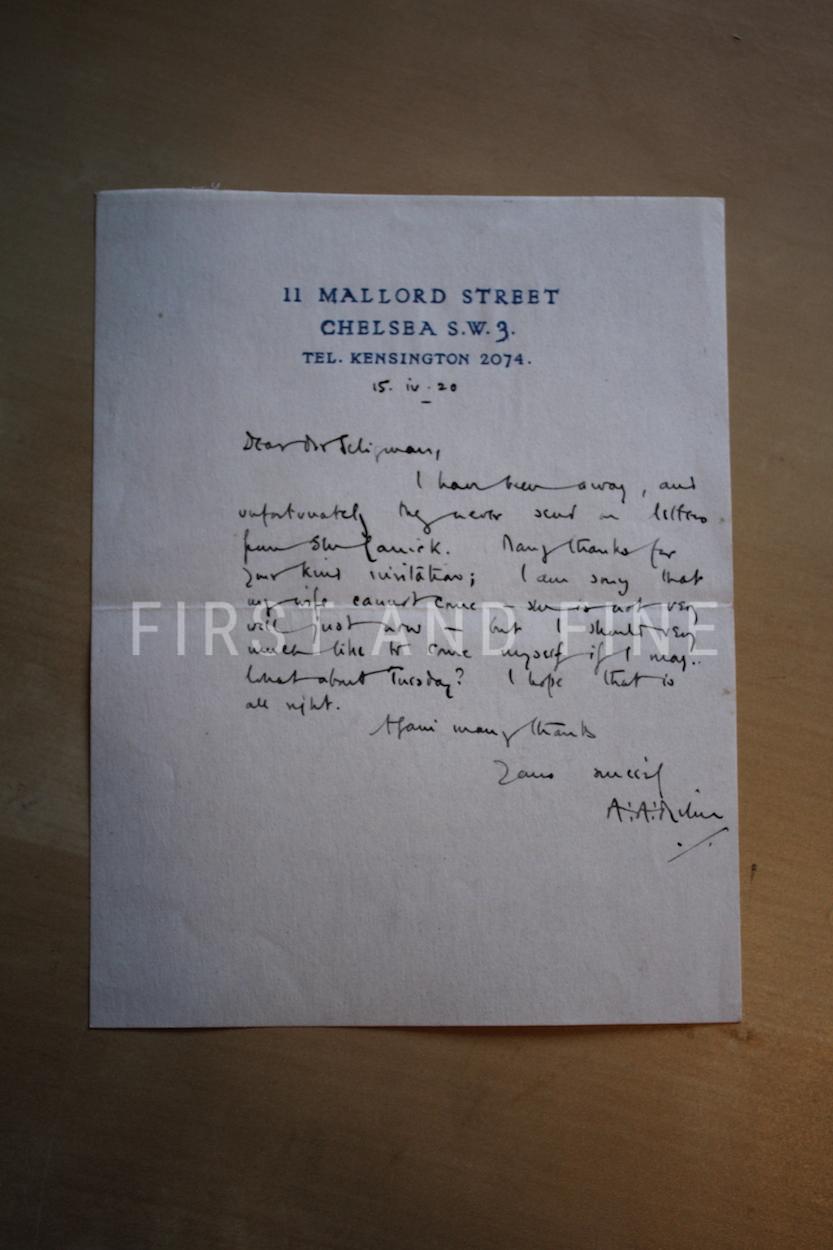 11 MALLORD STREET
CHELSEA S.W.3.
TEL. KENSINGTON 2074.
15. iv. 20
Dear Mr Seligman,
I have been away, and
unfortunately they never send on letters
from the Garrick. Many thanks for
your kind invitation; I am sorry that
my wife cannot come – she is not very
well just now – but I should very
much like to come myself if I may.
What about Tuesday? I hope that is
all right.
Again many thanks
Yours sincerely
A.A. Milne
FIRST AND FINE